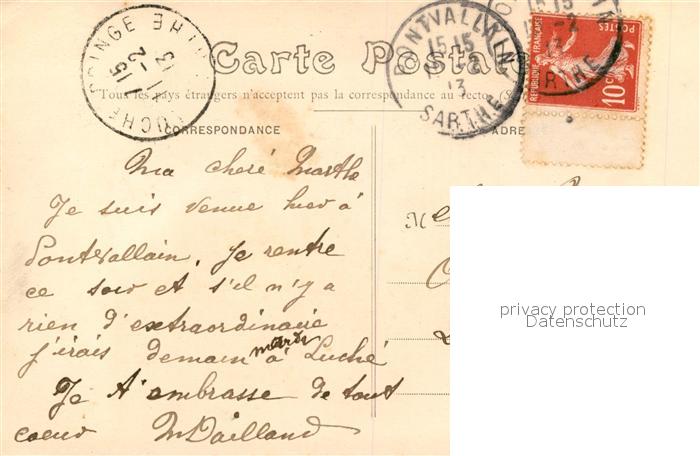 LUCHE PRINGE
1 15
11-2
13
SARTHE
Carte Postale
Tous les pays étrangers n'acceptent pas la correspondance au recto
CORRESPONDANCE
ADRE
PONTVALLAIN
15 15
13
SARTHE
REPUBLIQUE FRANÇAISE
POSTES
10c
Ma cheré Marthe
Je suis venue hier à
Pontvallain, Je rentre
ce soir et s'il n'y a
rien d'extraordinaire
j'irais demain mardi à Luché
Je t'ambrasse de tout
coeur M Dailland
privacy protection
Datenschutz